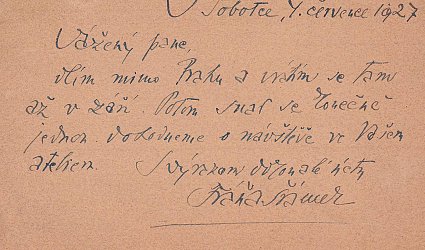 V Sobotce, 4. července 1927
Vážený pane,
dlím mimo Prahu a vrátím se tam
až v září. Potom snad se konečně
jednou dohodneme o návštěvě ve Vašem
atelieru. S výrazem dokonalé úcty
Fráňa Šrámek